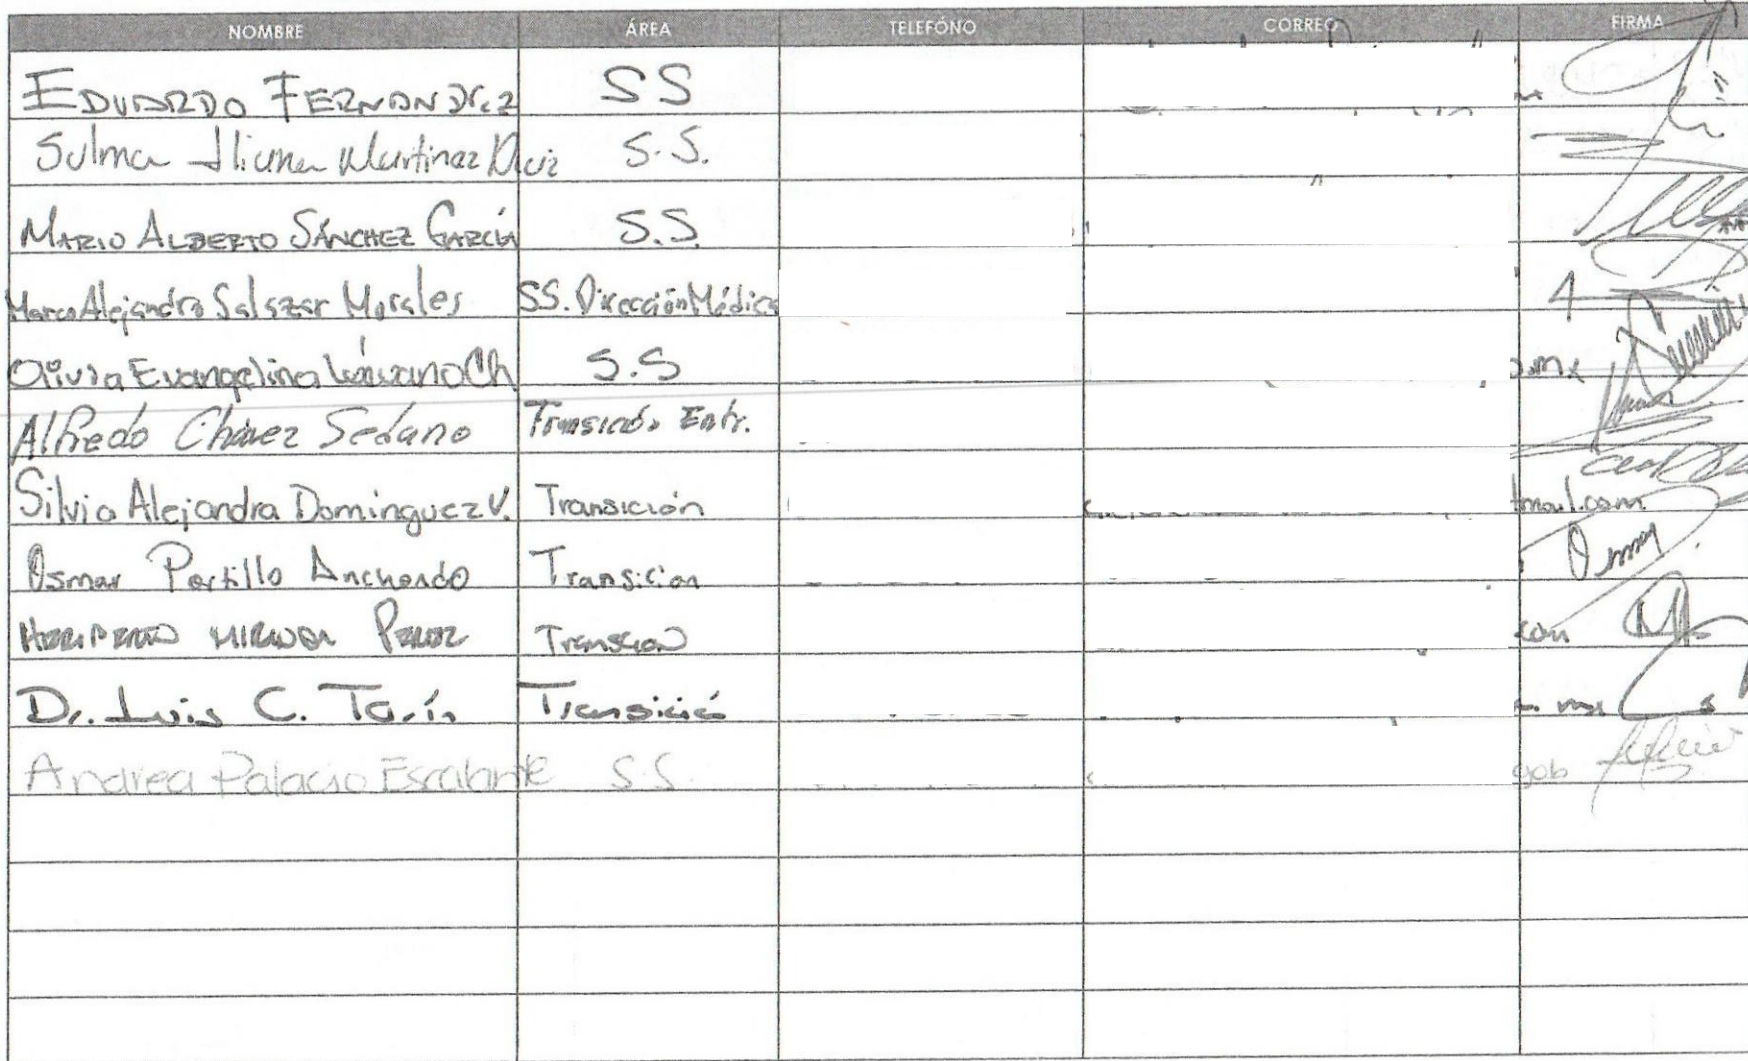 NOMBRE ÁREA TELEFÓNO CORREO FIRMA
EDUARDO FERNANDEZ SS
Sulma Iliana Martinez Ruiz S.S.
MARIO ALBERTO SÁNCHEZ GARCÍA S.S.
Marco Alejandro Salazar Morales SS. Dirección Médica
Olivia Evangelina Lozano Ch S.S
Alfredo Chávez Sedano Entr.
Silvia Alejandra Dominguez V. Transición tmail.com
Osmar Portillo Anchondo Transicion
HERIBERTO MIRANDA PEREZ Transicion com
Dr. Luis C. Tarín Transició
Andrea Palacio Escalante S.S. gob